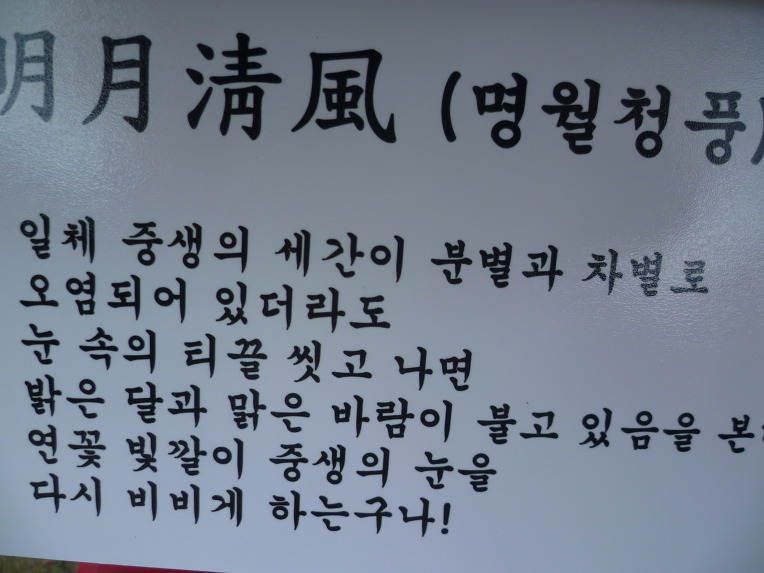 明月清風 (명월청풍)
일체 중생의 세간이 분별과 차별로
오염되어 있더라도
눈 속의 티끌 씻고 나면
밝은 달과 맑은 바람이 불고 있음을
연꽃 빛깔이 중생의 눈을
다시 비비게 하는구나!